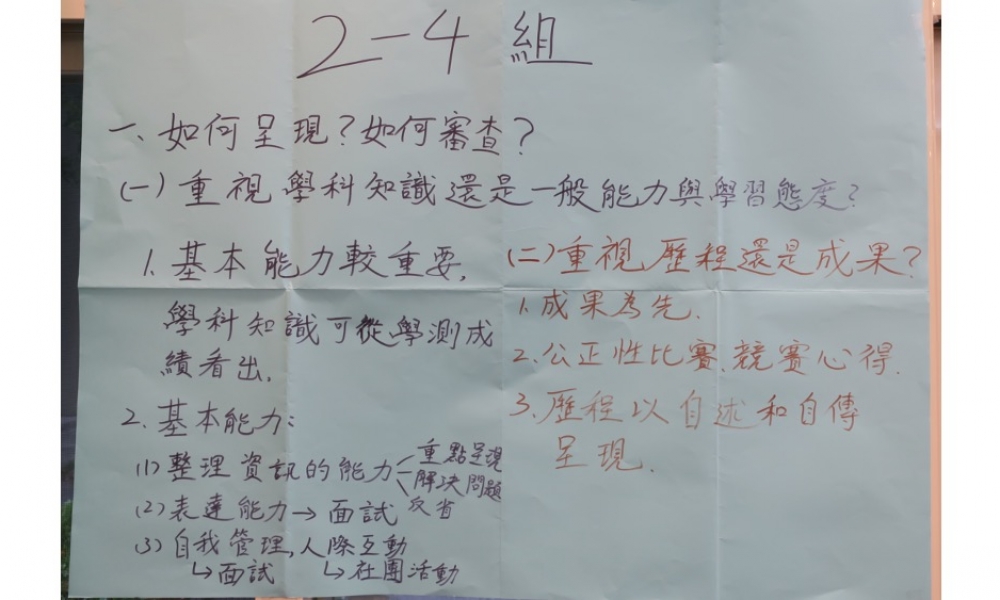 2-4 組
一、如何呈現?如何審查?
(一)重視學科知識還是一般能力與學習態度?
1.基本能力較重要,
學科知識可從學測成
績看出,
2.基本能力:
(1)整理資訊的能力
重點呈現
解決問題
反省
(2)表達能力→面試
(3)自我管理,人際互動
↳面試 ↳社團活動
(二)重視歷程還是成果?
1.成果為先.
2.公正性比賽、競賽心得.
3.歷程以自述和自傳
呈現.